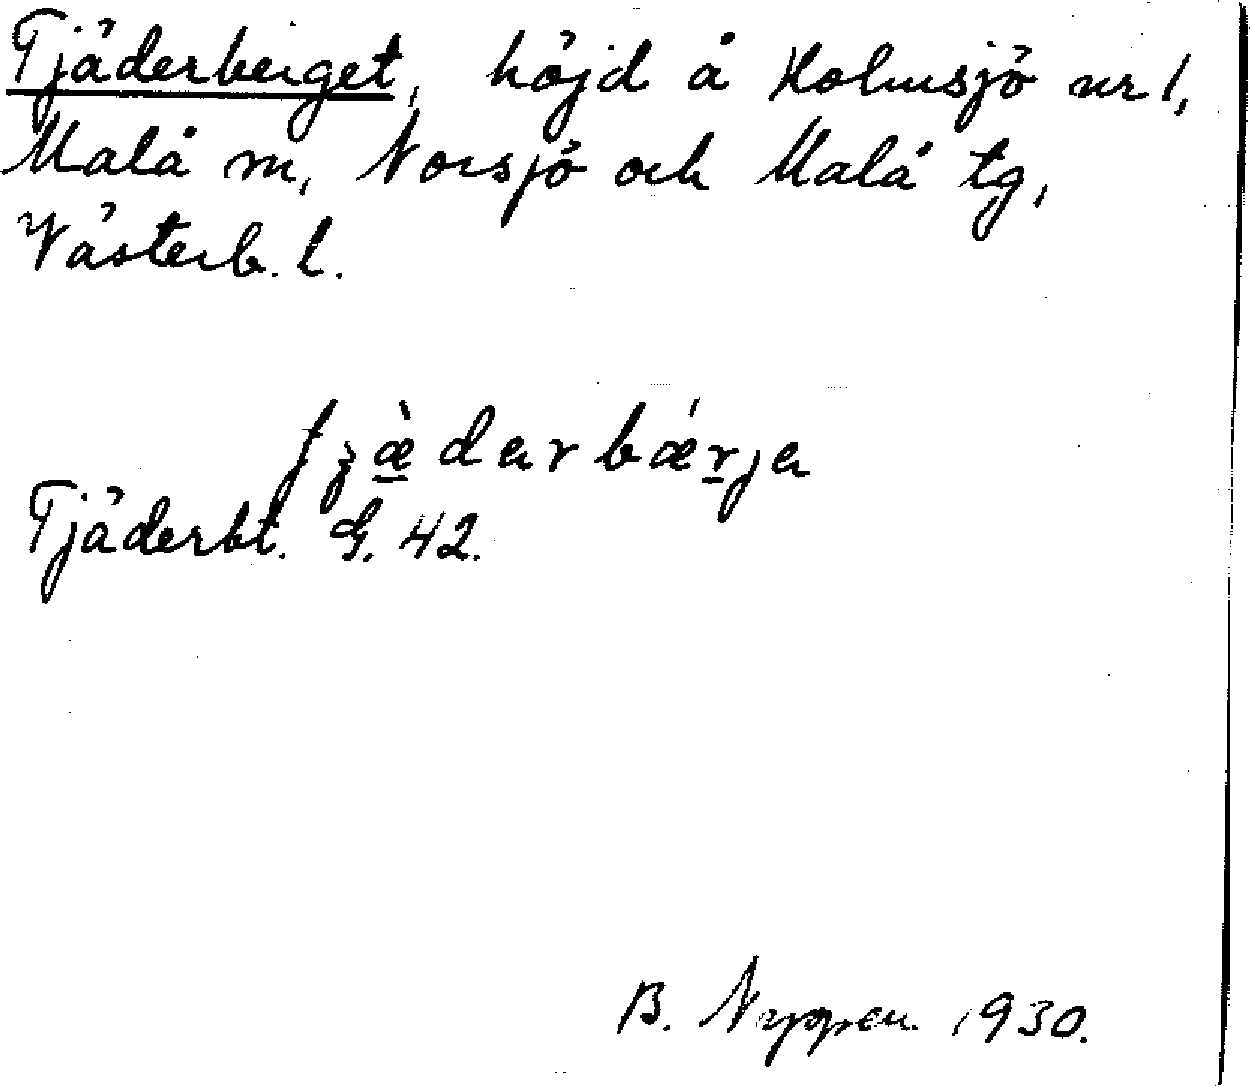 Tjäderberget, höjd å Holmsjö nr 1,
Malå sn, Norsjö och Malå tg,
Västerb. l.
Tjäderbt. G. 42.
B. 1930.